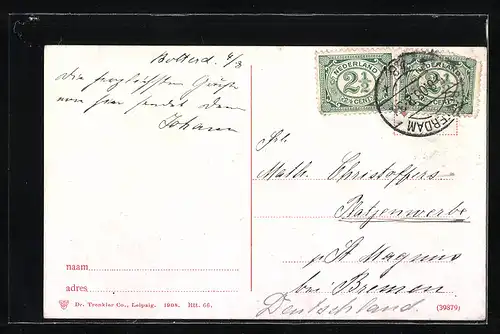 Rotterd. 4/3
Die herzlichsten Grüße
von hier sendet Dir
Johann
NEDERLAND
2½
2½ CENT
NEDERLAND
2½
ROTTERDAM
Frl.
Math. Christoffers
Katzenwerbe
p/ St Magnus
bei Bremen
Deutschland.
naam
adres
Dr. Trenkler Co., Leipzig. 1908. Rtt. 66.
(39879)